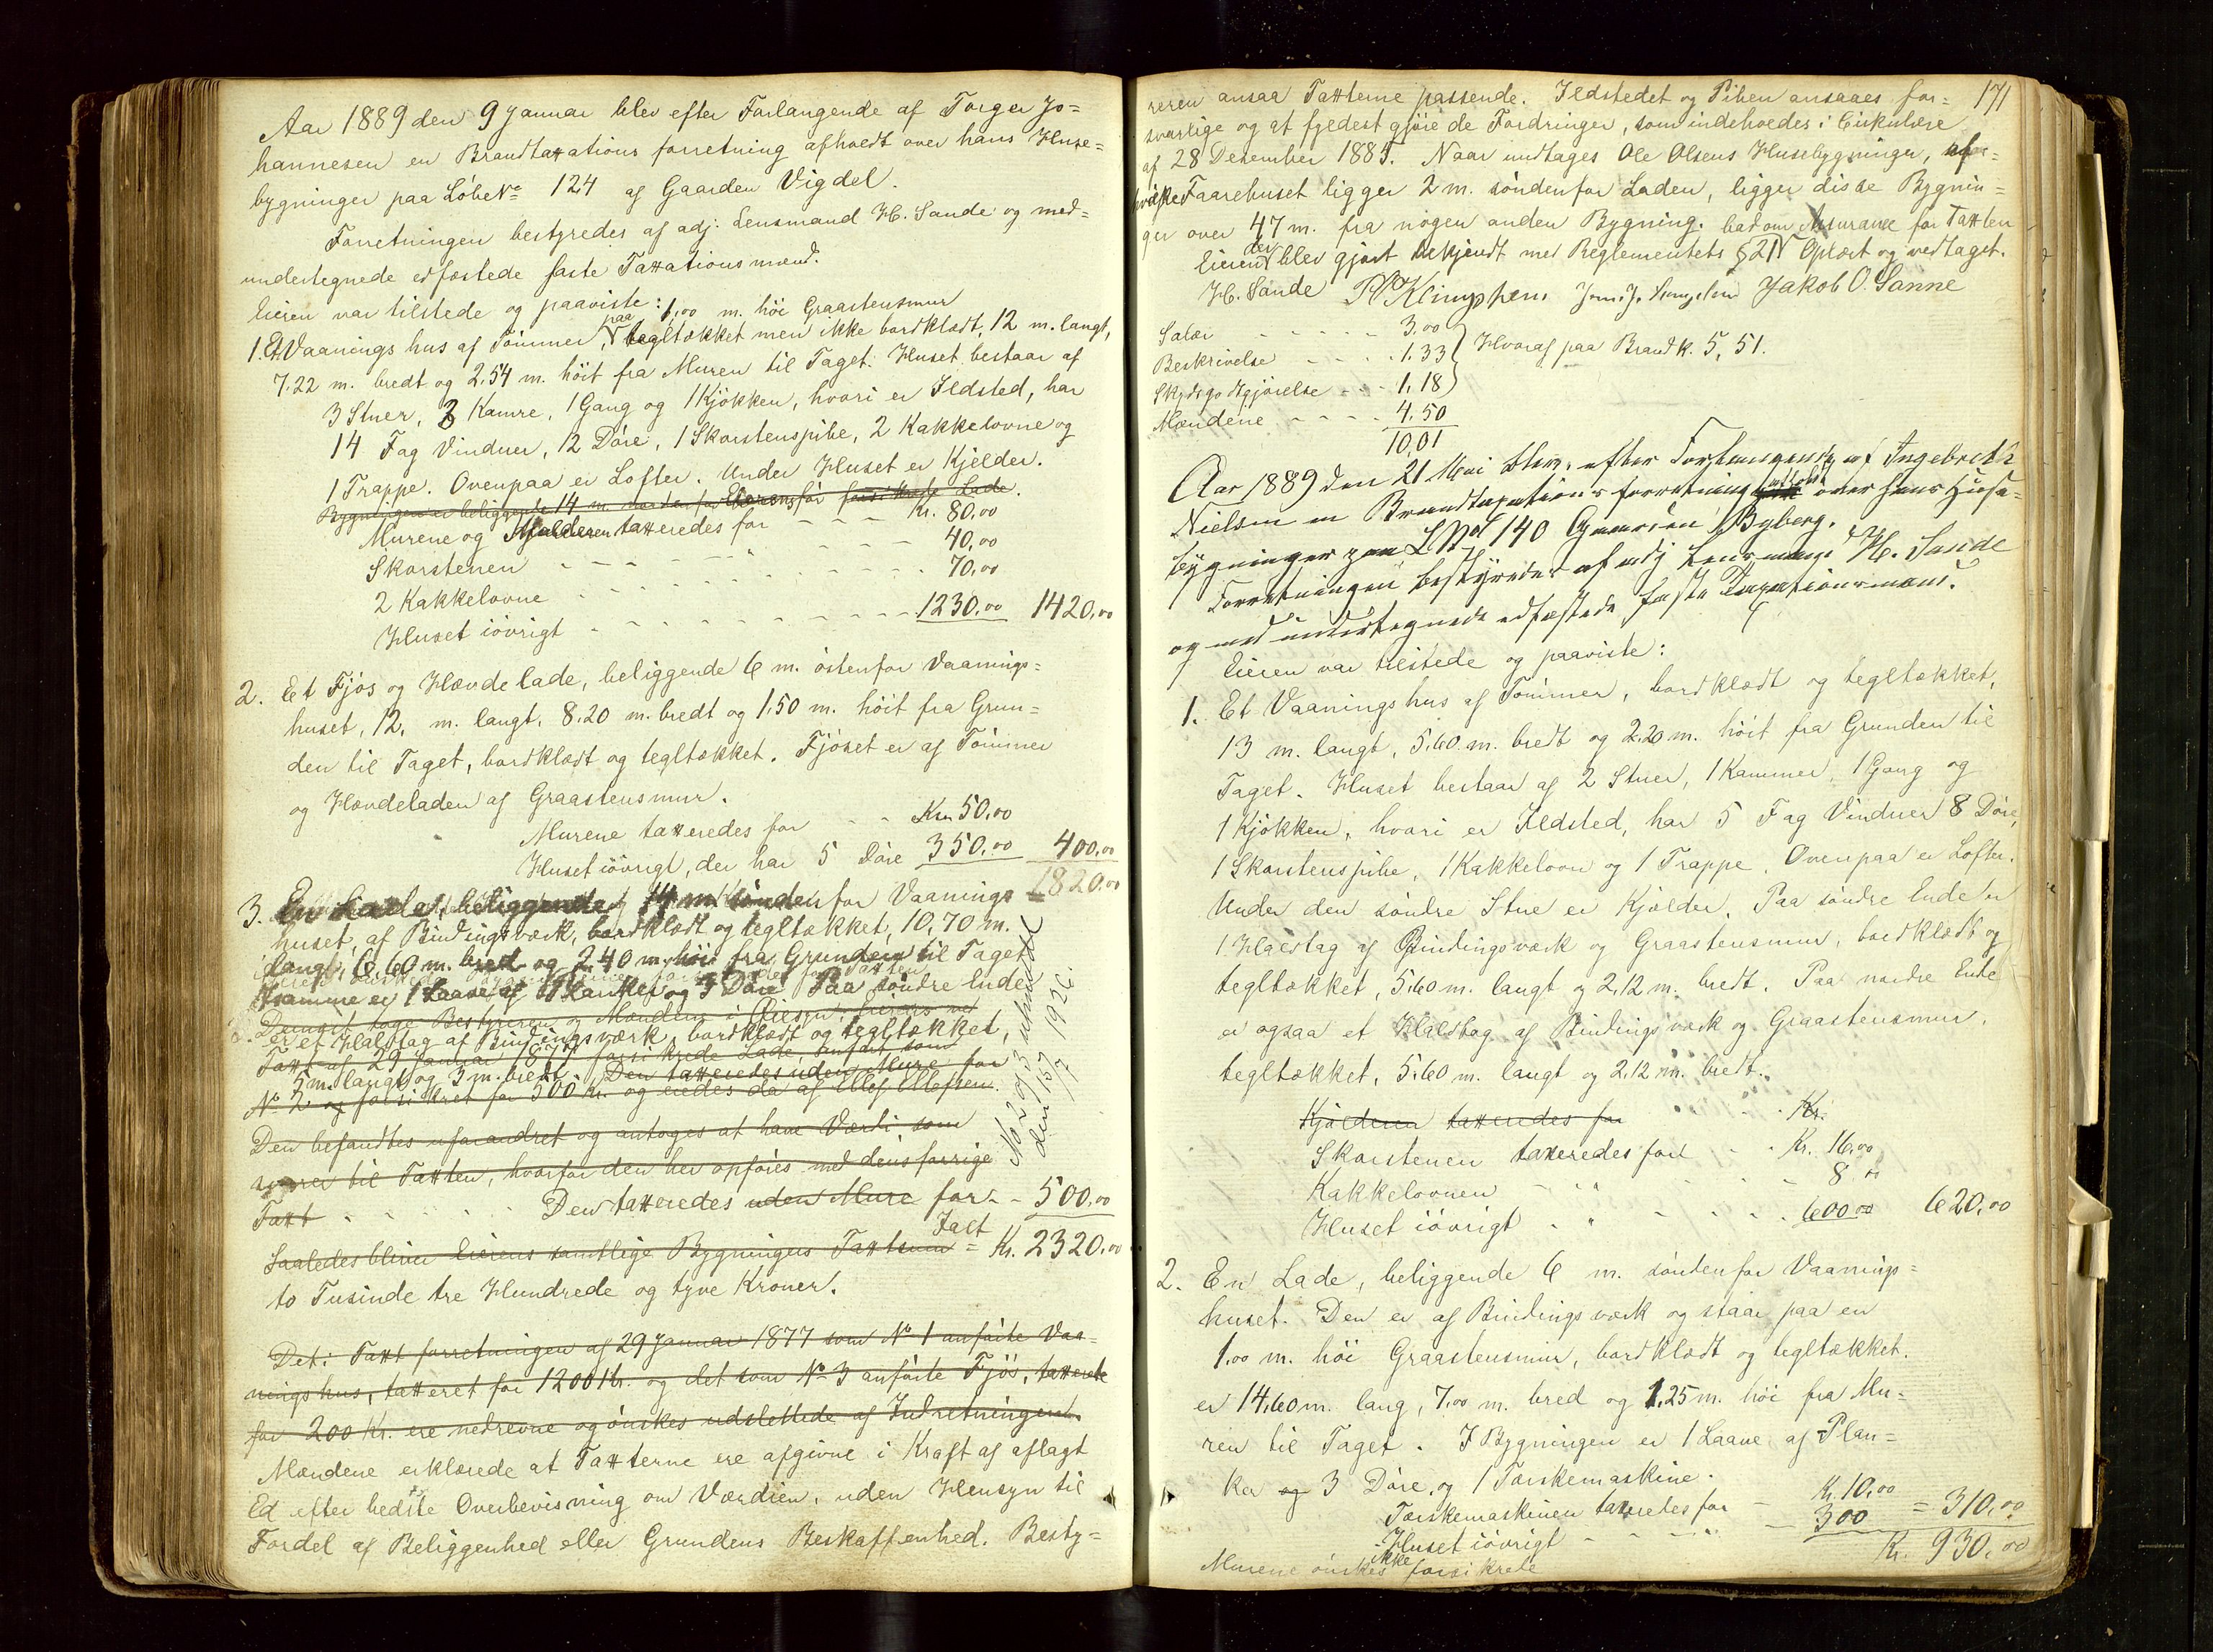 Aar 1889 den 9 Januar blev efter Forlangende af Torger Jo=
hannesen en Brandtaxations forretning afholdt over hans Huse=
bygninger paa Løbe No 124 af Gaarden Vigdel.
Forretningen bestyredes af adj. Lensmand H. Sande og med=
undertegnede edfæstede faste Taxationsmænd.
Eieren var tilstede og paaviste:
1. Et Vaaningshus af Tømmer, paa 1,00 m. høi Graastensmur tegltækket men ikke bordklædt, 12 m. langt,
7.22 m. bredt og 2,54 m. høit fra Muren til Taget. Huset bestaar af
3 Stuer, 2 Kamre, 1 Gang og 1 Kjøkken, hvori er Ildsted, har
14 Fag Vinduer, 12 Døre, 1 Skorstenspibe, 2 Kakkelovne og
1 Trappe. Ovenpaa er Lofter. Under Huset er Kjelder.
Bygningen er beliggende 14 m. norden for Eierens før forsikrede Lade.
Murene og Kjælderen taxeredes for - - - Kr. 80,00
Skorstenen - - - 40,00
2 Kakkelovne - - - 70,00
Huset iøvrigt - - - 1230,00 1420,00
2. Et Fjøs og Hævdelade, beliggende 6 m. østenfor Vaanings=
huset, 12, m. langt, 8,20 m. bredt og 1,50 m. høit fra Grun=
den til Taget, bordklædt og tegltækket. Fjøset er af Tømmer
og Hævdeladen af Graastensmur.
Murene taxeredes for - - Kr 50,00
Huset iøvrigt, der har 5 Døre 350,00 400,00
1820,00
3. En Lade, beliggende 14 m. sønden for Vaanings=
huset, af Bindingsværk, bordklædt og tegltækket, 10,70 m.
lang, 6,60 m. bred og 2,40 m. høi fra Grunden til Taget
Paa søndre Ende
Demnæst toge Bestyreren og Mændene i Øiesyn
er et Halvtag af Bindingsværk, bordklædt og tegltækket,
Taxt af 29 Januar 1877 forsikrede Lade, anført som
5 m. langt og 3 m. bredt. Den taxeredes uden Mure for
No 2 og forsikret for 500 Kr. og eiedes da af Ellef Ellefsen.
Den befandtes uforandret og antoges at have Værdi som
svarer til Taxten, hvorfor den her opføres med dens forrige
Taxt - - - Den taxeredes uden Mure for - - 500,00
No 2 og 3 udmeldt
den 15/7 1926.
Saaledes bliver Eierens samtlige Bygningers Taxtsum Ialt = Kr. 2320,00
to Tusinde tre Hundrede og tyve Kroner.
Det i Taxtforretningen af 29 Januar 1877 som No 1 anførte Vaa=
ningshus, taxeret for 1200 Kr. og det som No 3 anførte Fjøs, taxerede
for 200 Kr. ere nedrevne og ønskes udslettede af Indretningen.
Mændene erklærede at Taxterne ere afgivne i Kraft af aflagt
Ed efter bedste Overbevisning om Værdien, uden Hensyn til
Fordel af Beliggenhed eller Grundens Beskaffenhed. Besty=
171
reren ansaa Taxterne passende. Ildstedet og Piben ansaaes for=
svarlige og at fyldestgjøre de Fordringer, som indeholdes i Cirkulære
af 28 Desember 1885. Naar undtages Ole Olsens Husebygninger, af
hvilke Faarehuset ligger 2 m. søndenfor Laden, ligger disse Bygnin=
ger over 47 m. fra nogen anden Bygning.
Eieren der blev gjort bekjendt med Reglementets § 21 bad om Assurance for Taxten Oplæst og vedtaget.
H. Sande Jakob O. Sanne
Salær - - - - 3.00
Beskrivelse - - - - 1.33
Skydsgodtgjørelse - - - 1,18
Mændene - - - - 4.50
10,01
Hvoraf paa Brandk. 5,51.
Aar 1889 den 21 Mai blev efter Forlangende af Ingebreth
Nielsen en Brandtaxations forretning afholdt over hans Huse=
bygninger paa L No 140 Gaarden Byberg.
Forretningen bestyredes af adj Lensmand H. Sande
og med undertegnede edfæstede faste Taxationsmænd.
Eieren var tilstede og paaviste:
1. Et Vaaningshus af Tømmer, bordklædt og tegltækket,
13 m. langt, 5,60 m. bredt og 2,20 m. høit fra Grunden til
Taget. Huset bestaar af 2 Stuer, 1 Kammer, 1 Gang og
1 Kjøkken, hvori er Ildsted, har 5 Fag Vinduer 8 Døre,
1 Skorstenspibe, 1 Kakkelovn og 1 Trappe. Ovenpaa er Lofter.
Under den søndre Stue er Kjælder. Paa søndre Ende er
1 Halvtag af Bindingsværk og Graastensmur, bordklædt og
tegltækket, 5,60 m. langt og 2,12 m. bredt. Paa nordre Ende
er ogsaa et Halvtag af Bindingsværk og Graastensmur,
tegltækket, 5,60 m. langt og 2,12 m. bredt.
Kjælderen taxeredes for - - - Kr.
Skorstenen taxeredes for - - Kr. 16,00
Kakkelovnen - - - 8,00
Huset iøvrigt - - - 600,00 620,00
2. En Lade, beliggende 6 m. søndenfor Vaanings=
huset. Den er af Bindingsværk og staar paa en
1,00 m. høi Graastensmur, bordklædt og tegltækket.
er 14,60 m. lang, 7,00 m. bred og 1,25 m. høi fra Mu=
ren til Taget. I Bygningen er 1 Laave af Plan=
ker og 3 Døre, og 1 Tærskemaskine.
Tærskemaskinen taxeredes for - Kr. 10,00
Huset iøvrigt - - - 300 = 310,00
Murene ønskes ikke forsikrede Kr. 930,00